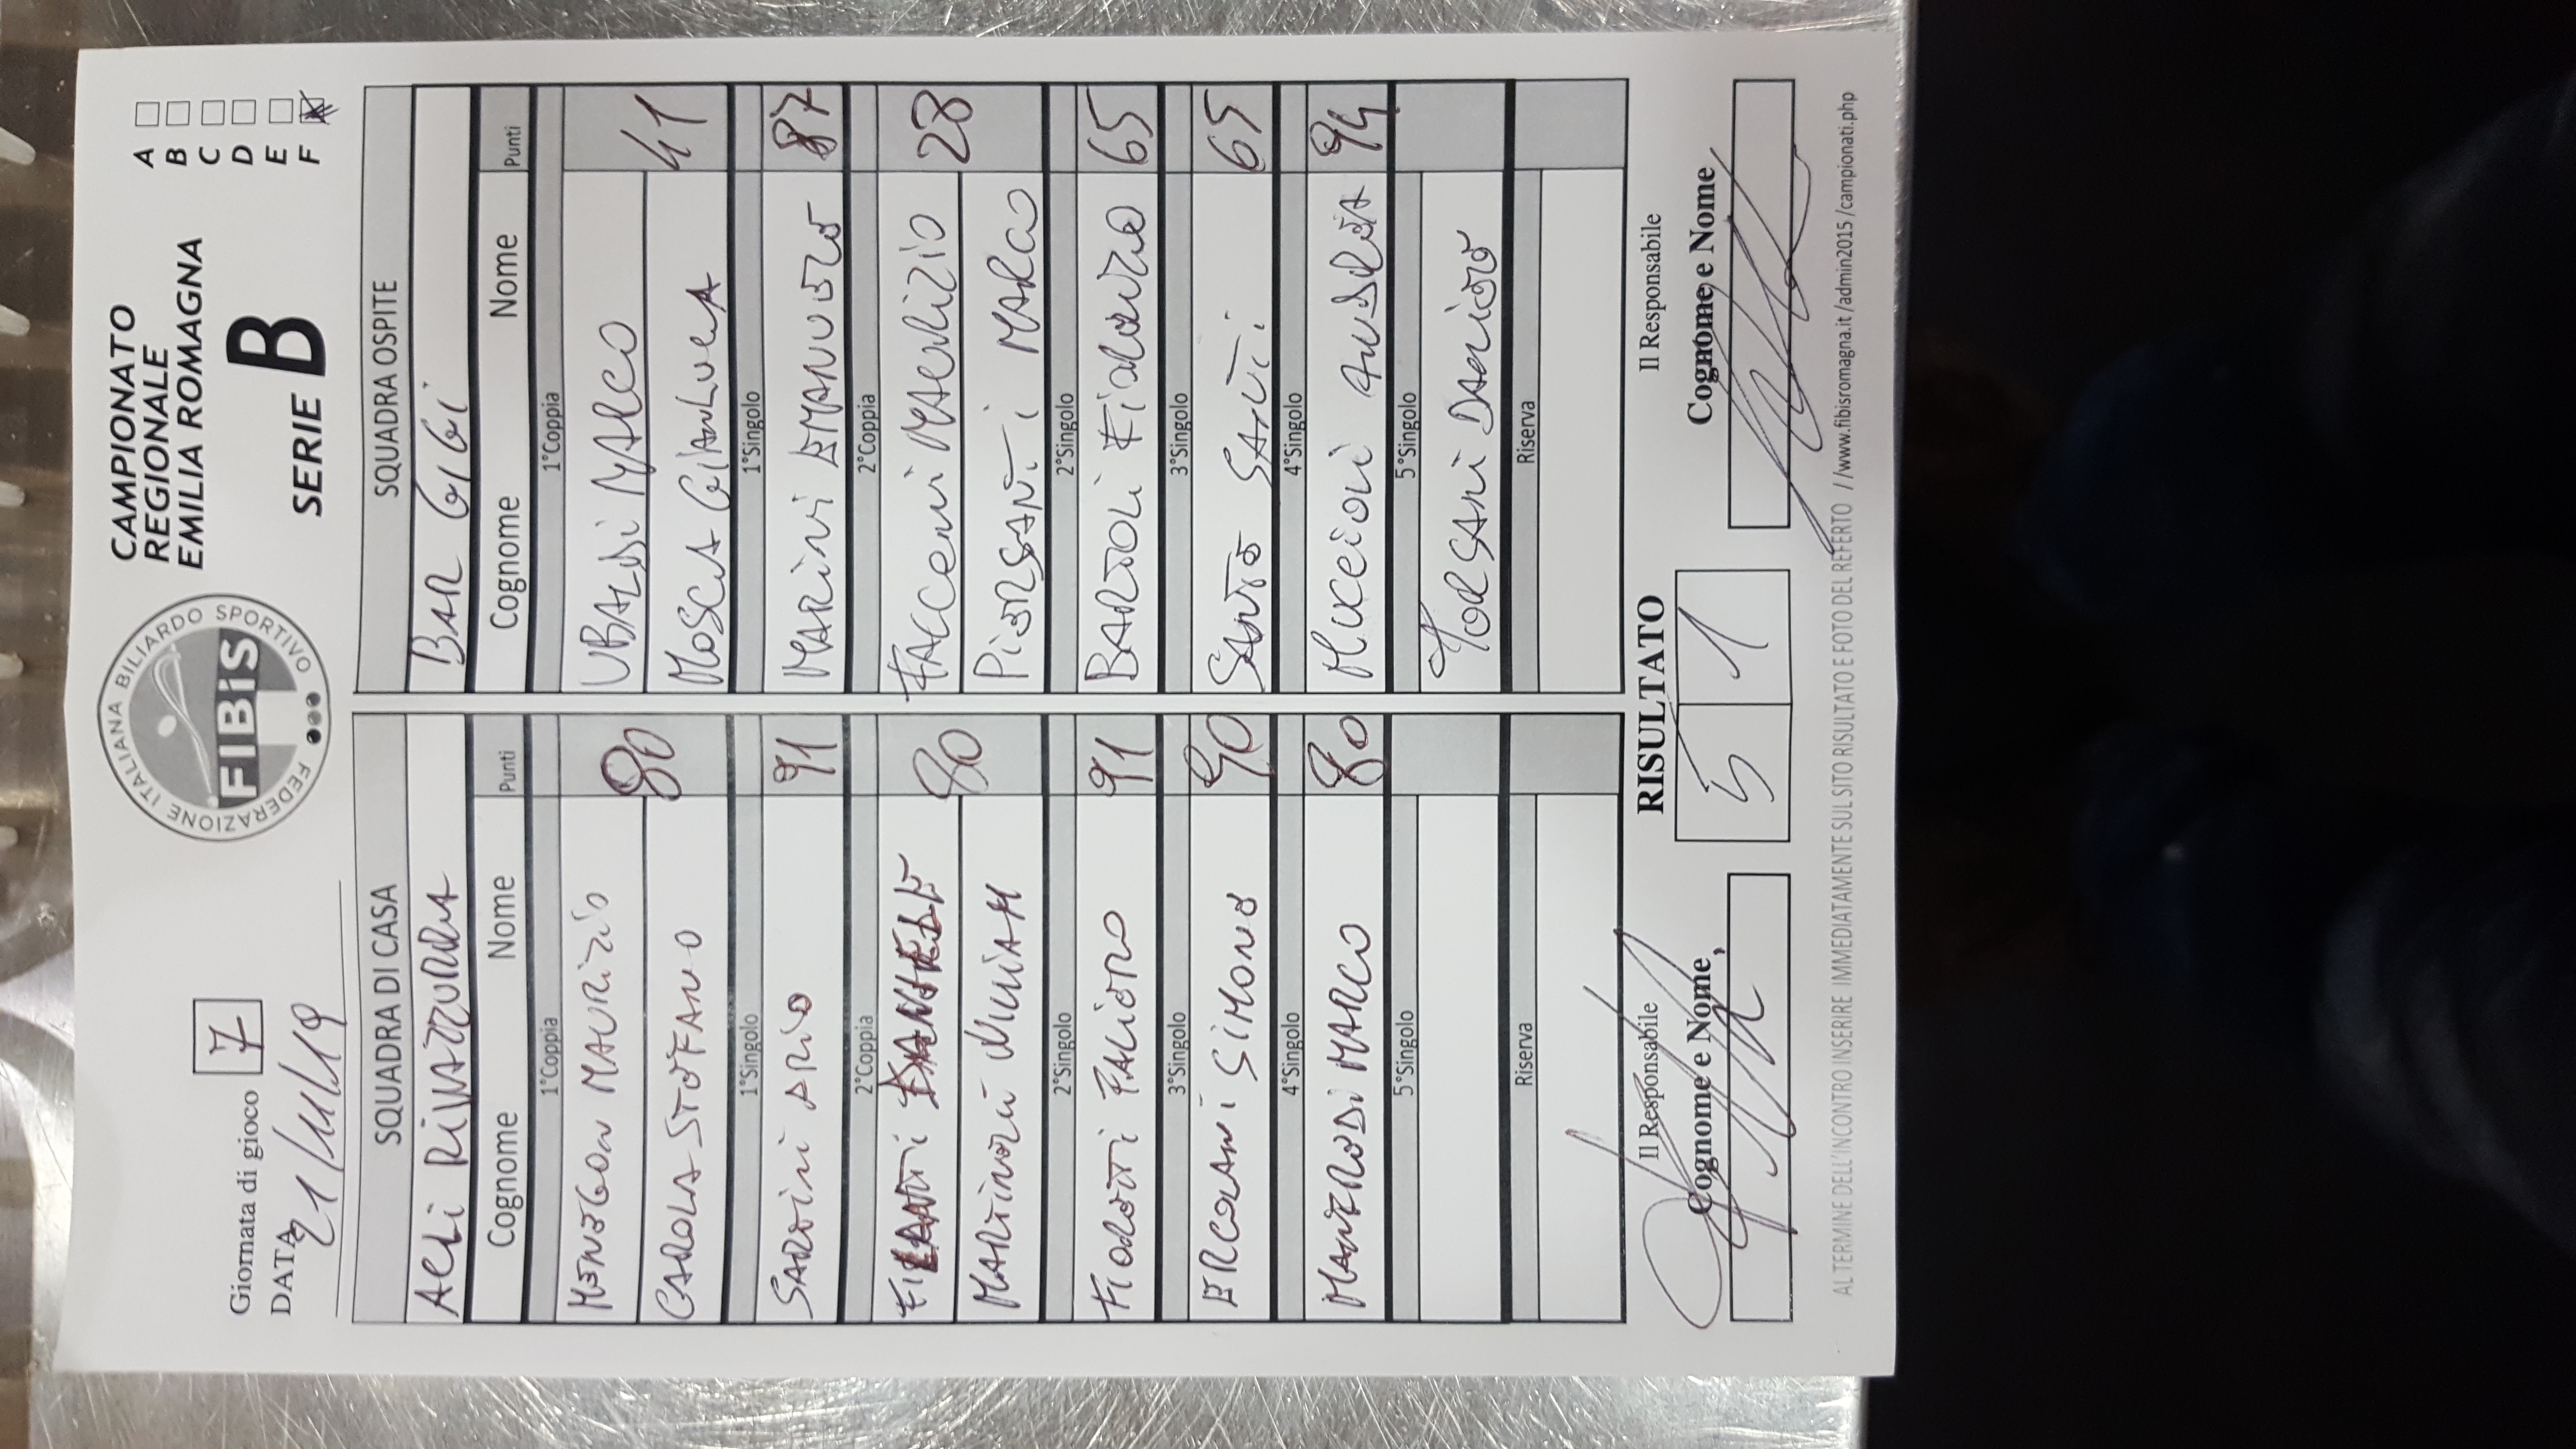 FEDERAZIONE ITALIANA BILIARDO SPORTIVO
FIBiS
CAMPIONATO
REGIONALE
EMILIA ROMAGNA
SERIE B
A
B
C
D
E
F
Giornata di gioco 7
DATA 21/
SQUADRA DI CASA SQUADRA OSPITE
ACLI RIVAZZURRA BAR GIGI
Cognome Nome Punti Cognome Nome Punti
1°Coppia 1°Coppia
MENEGON MAURIZIO 80 UBALDI MARCO 41
CAROLA STEFANO MOSCA GIANLUCA
1°Singolo 1°Singolo
SARTINI 91 MARINI 87
2°Coppia 2°Coppia
80 FACCENI MAURIZIO 28
MIRIAM PIERSANTI MARCO
2°Singolo 2°Singolo
91 BARTOLI 65
3°Singolo 3°Singolo
ERCOLANI SIMONE 90 SANTE SANTI 65
4°Singolo 4°Singolo
MARCO 80 MUCCIOLI ANDREA 94
5°Singolo 5°Singolo
Riserva Riserva
RISULTATO
Il Responsabile 5 1 Il Responsabile
Cognome e Nome Cognome e Nome
AL TERMINE DELL'INCONTRO INSERIRE IMMEDIATAMENTE SUL SITO RISULTATO E FOTO DEL REFERTO //www.fibisromagna.it/admin2015/campionati.php